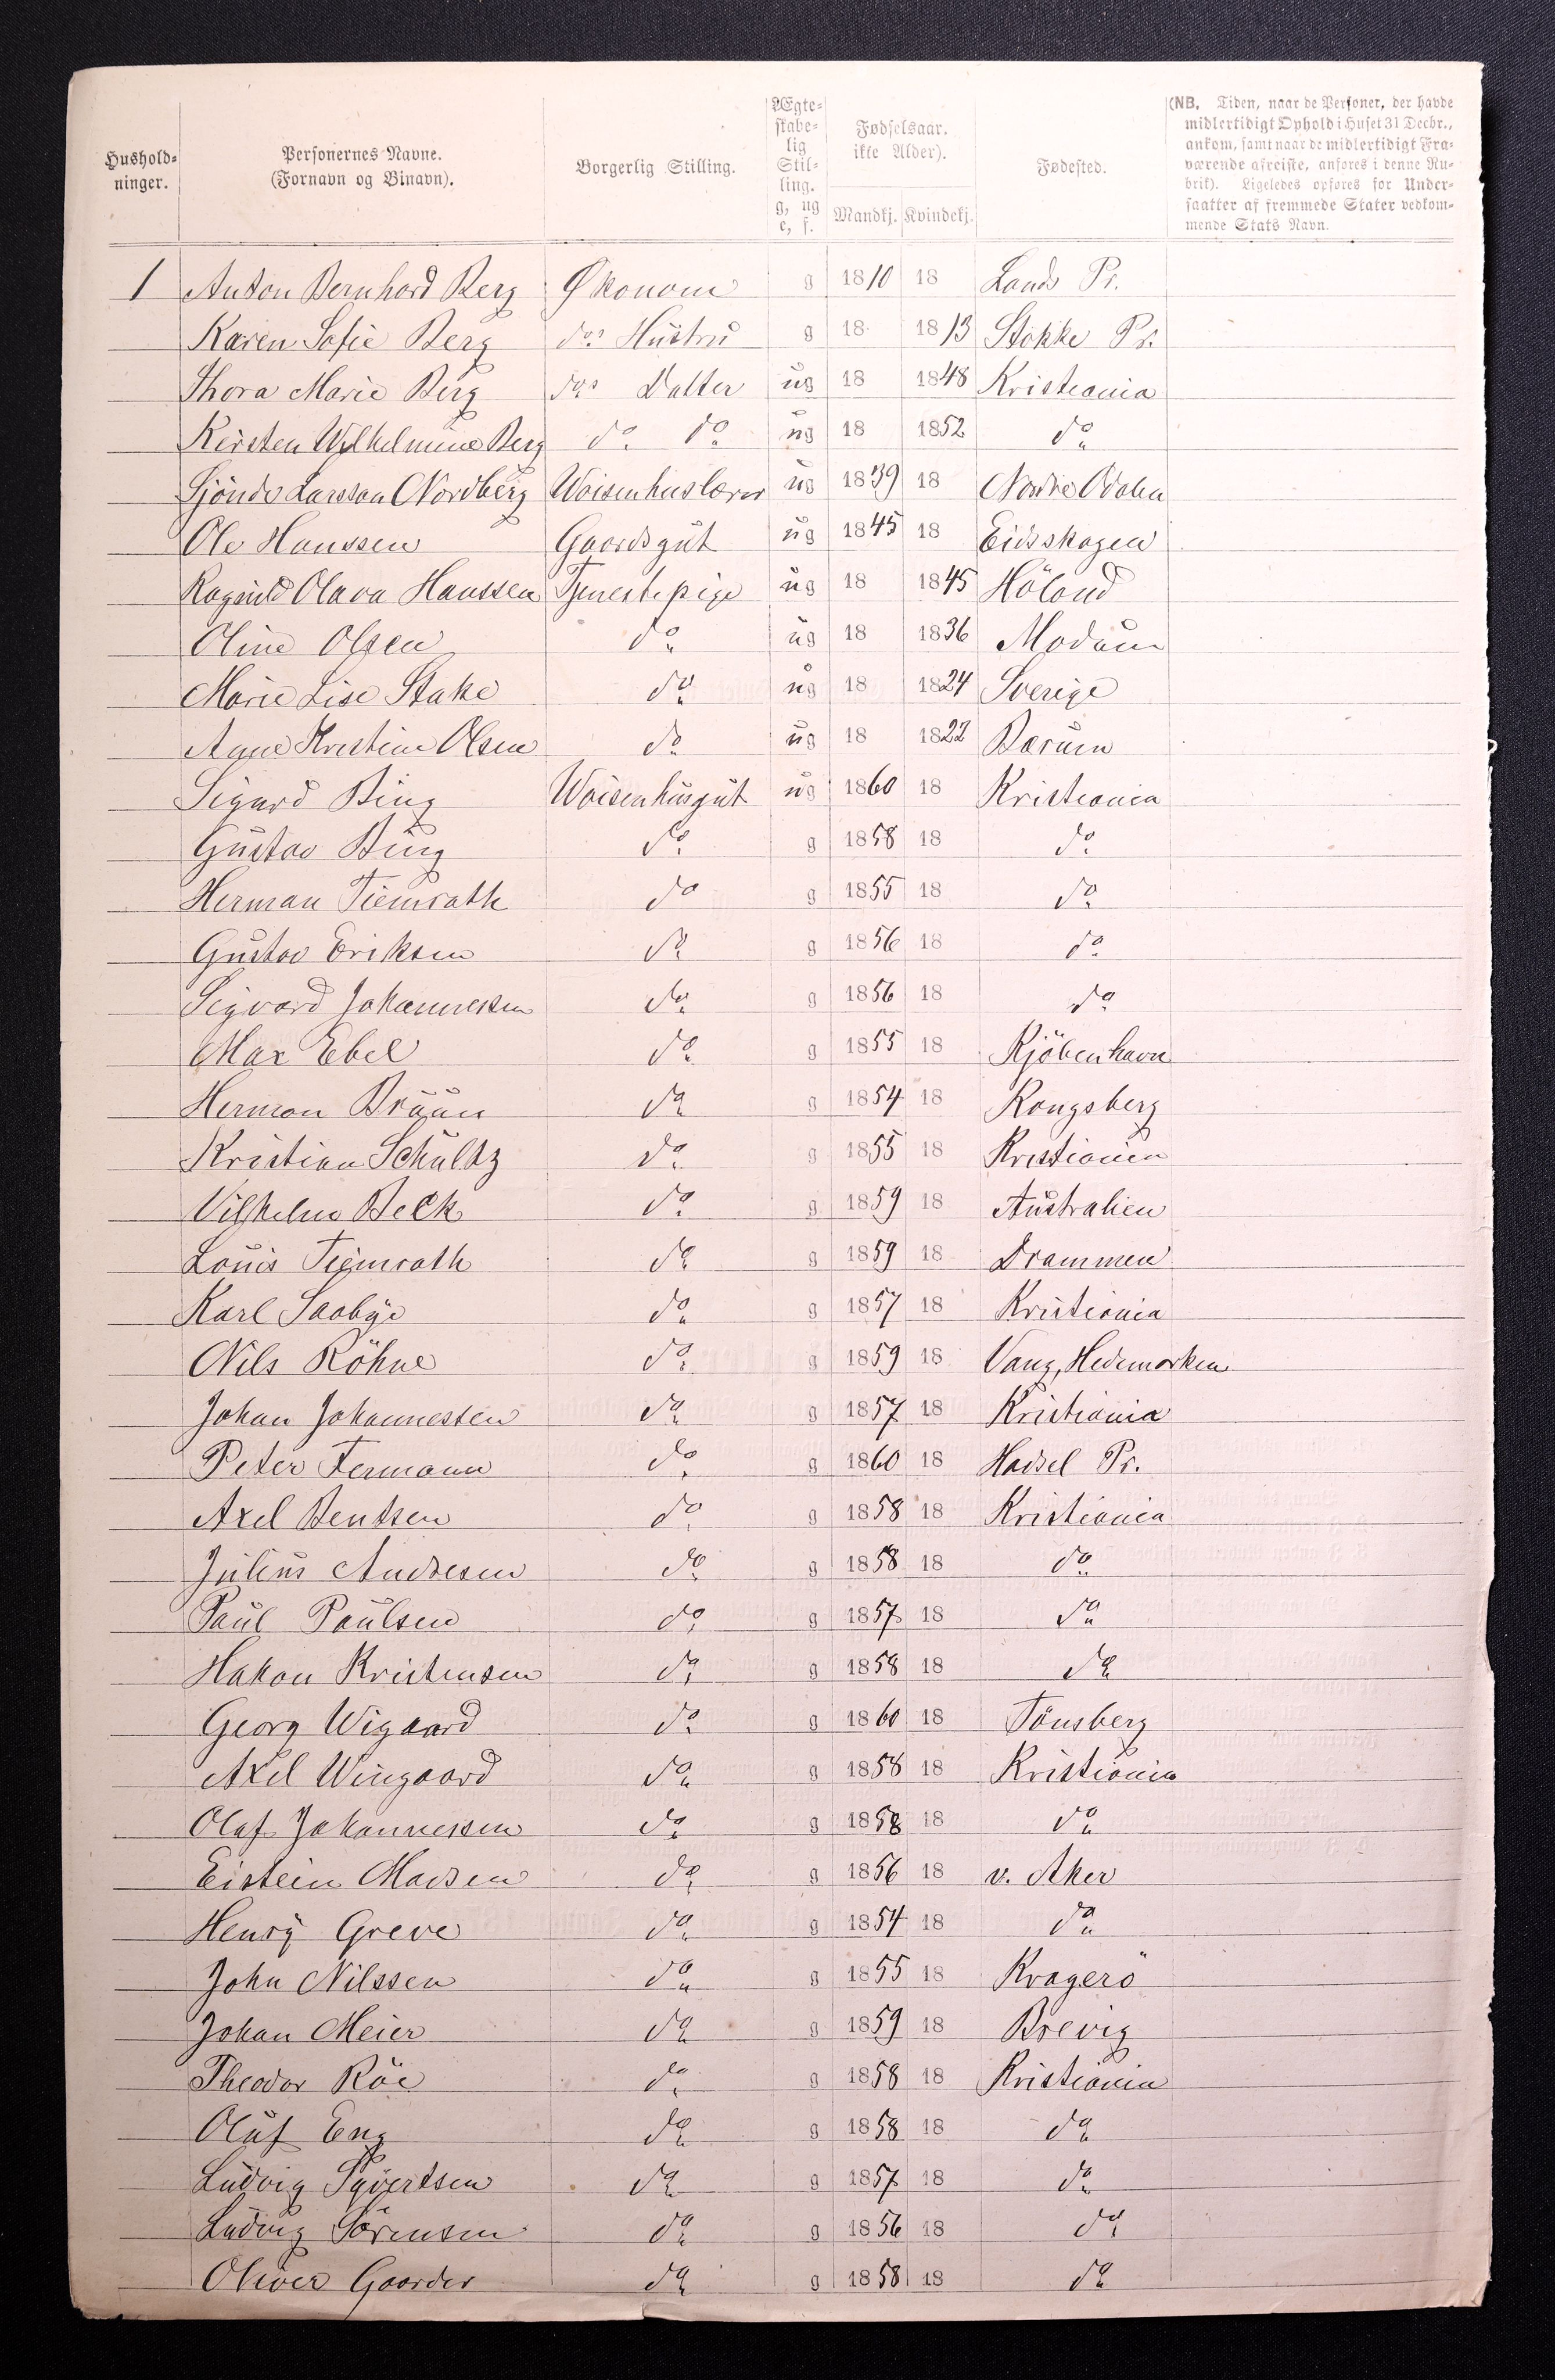 Hushold-
ninger.
Personernes Navne.
(Fornavn og Binavn).
Borgerlig Stilling.
Ægte-
skabe-
lig
Stil-
ling.
g, ug
e, f.
Fødselsaar.
ikke Alder).
Mandkj. Kvindekj.
Fødested.
(NB. Tiden, naar de Personer, der havde
midlertidigt Ophold i Huset 31 Decbr.,
ankom, samt naar de midlertidigt Fra-
værende afreiste, anføres i denne Ru-
brik). Ligeledes opføres for Under-
saatter af fremmede Stater vedkom-
mende Stats Navn.
1 Anton Bernhard Berg Økonom g 1810 18 Lands Pr.
Karen Sofie Berg do's Hustru g 18 1813 Stokke Pr.
Thora Marie Berg do's Datter ug 18 1848 Kristiania
Kirsten Wilhelmine Berg do. do. ug 18 1852 do.
Sjönde Larsson Nordberg Waisenhuslærer ug 1839 18 Nordre Odalen
Ole Hanssen Gaardsgut ug 1845 18 Eidsskogen
Ragnild Olava Hanssen Tjenestepige ug 18 1845 Höland
Oline Olsen do. ug 18 1836 Modum
Marie Lise Stake do. ug 18 1824 Sverige
Agne Kristine Olsen do. ug 18 1822 Bærum
Sigurd Bing Waisenhusgut ug 1860 18 Kristiania
Gustav Bing do. g 1858 18 do.
Herman Tiemroth do g 1855 18 do.
Gustav Eriksen do. g 1856 18 do.
Sigvard Johannessen do. g 1856 18 do.
Max Ebel do. g 1855 18 Kjöbenhavn
Herman Bruun do. g 1854 18 Kongsberg
Kristian Schultz do. g 1855 18 Kristiania
Vilhelm Beck do. g 1859 18 Australien
Louis Tiemroth do. g 1859 18 Drammen
Karl Saabye do. g 1857 18 Kristiania
Nils Röhne do. g 1859 18 Vang, Hedemarken
Johan Johannessen do. g 1857 18 Kristiania
Peter Fermann do. g 1860 18 Hadsel Pr.
Axel Bentsen do. g 1858 18 Kristiania
Julius Andresen do. g 1858 18 do.
Paul Paulsen do. g 1857 18 do.
Hakon Kristensen do. g 1858 18 do.
Georg Wigaard do. g 1860 18 Tönsberg
Axel Wingaard do. g 1858 18 Kristiania
Olaf Johannessen do. g 1858 18 do.
Eistein Madsen do. g 1856 18 v. Aker
Henry Greve do. g 1854 18 do.
John Nilssen do. g 1855 18 Kragerö
Johan Meier do. g 1859 18 Brevig
Theodor Röe do. g 1858 18 Kristiania
Oluf Eng do. g 1858 18 do.
Ludvig Syvertsen do. g 1857 18 do.
Ludvig Sörensen do. g 1856 18 do.
Oliver Gaarder do. g 1858 18 do.